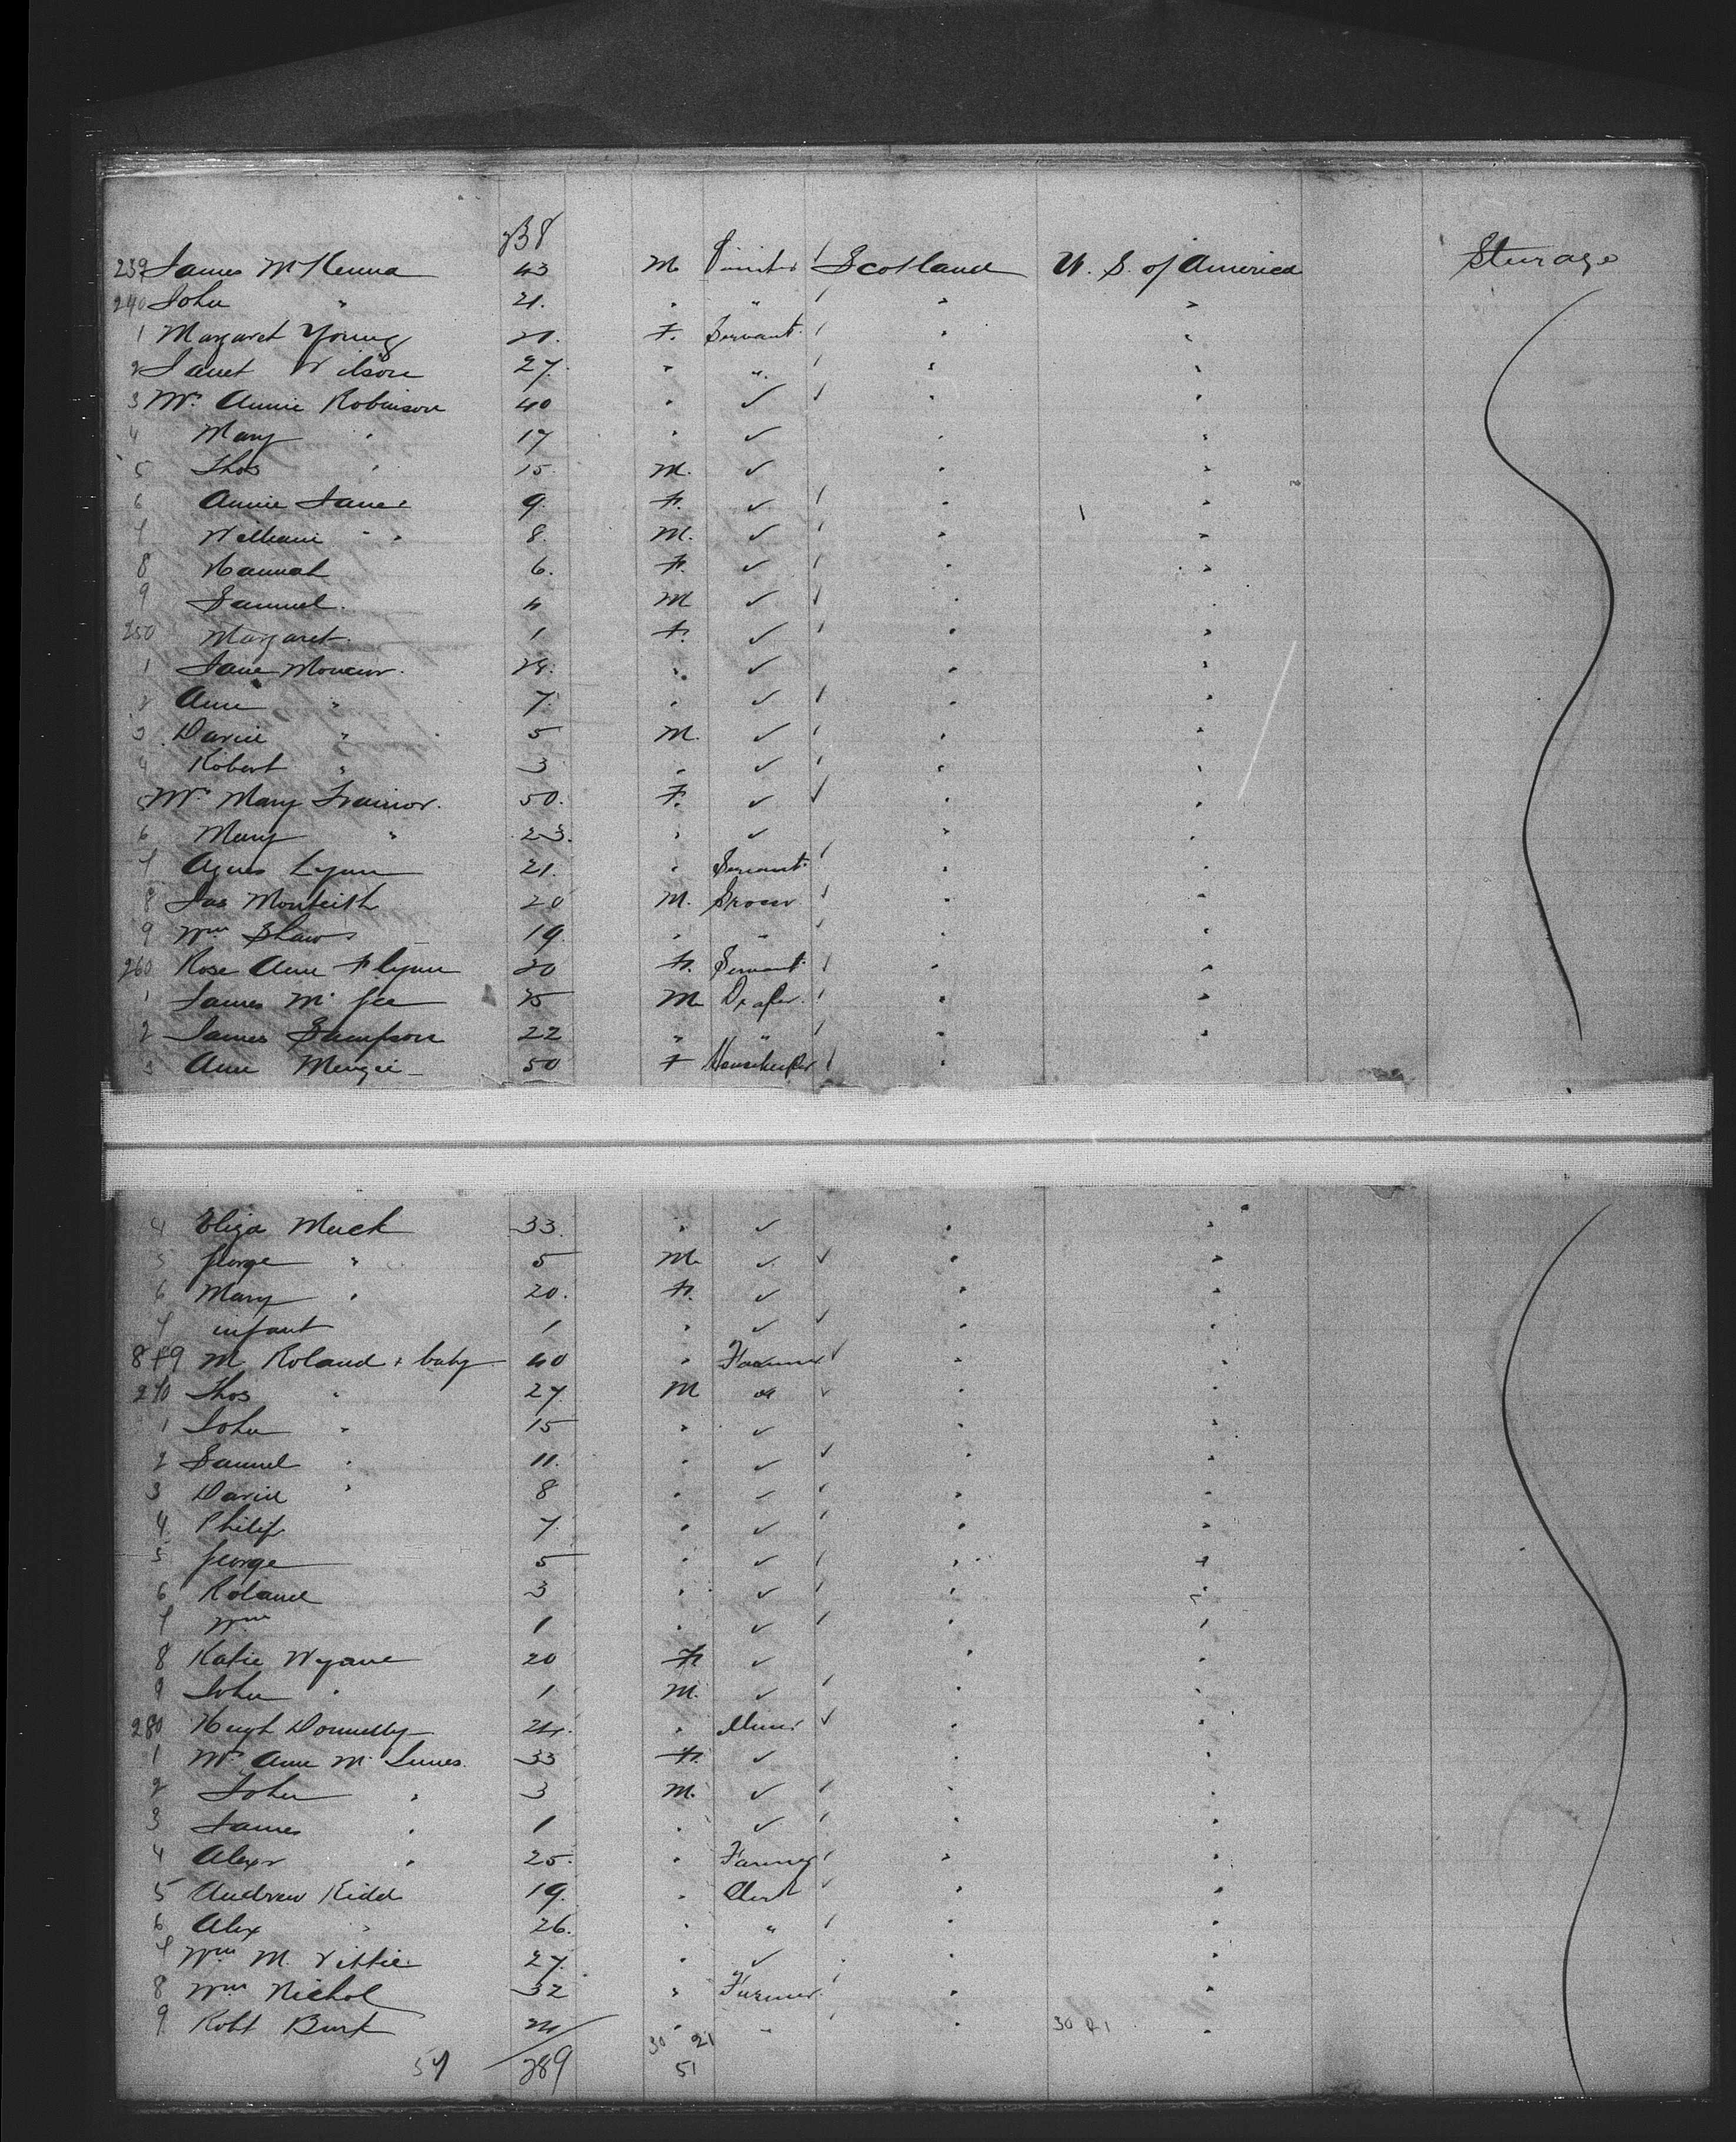 238
239 James McKenna 43 M Scotland U. S. of America Sturage
240 John " 21. " " " "
1 Margaret Young 21. F. Servant " "
2 Janet Wilson 27. " " " "
3 Mrs Annie Robinson 40 " ✓ " "
4 Mary " 17 " ✓ " "
5 Thos " 15 M. ✓ " "
6 Annie Jane " 9. F. ✓ " "
7 William " " 8. M. ✓ " "
8 Hannah 6. F. ✓ " "
9 Samuel. 4 M ✓ " "
250 Margaret. 1 F. ✓ " "
1 Jane 24. " ✓ " "
2 Ann " 7. " ✓ " "
3 David " 5 M. ✓ " "
4 Robert " 3 " ✓ " "
5 Mrs Mary Trainor. 50. F. ✓ " "
6 Mary " 23. " ✓ " "
7 Agnes Lynn 21. " Servant " "
8 Jas Monteith 20 M. Grocer " "
9 Wm Shaw 19. " " " "
260 Rose Ann Flynn 20 F. Servant " "
1 James McGee 25 M Draper. " "
2 James Sampson 22 " " " "
3 Ann Menzie 50 F Housekeeper " "
4 Eliza Muck 33. " ✓ " "
5 George " 5 M ✓ " "
6 Mary " 20. F. ✓ " "
7 infant 1 " ✓ " "
8 & 9 M Roland & baby 40 " Farmer " "
270 Thos " 27. M " " "
1 John " 15 " ✓ " "
2 Samuel " 11. " ✓ " "
3 David " 8 " ✓ " "
4 Philip 7. " ✓ " "
5 George 5 " ✓ " "
6 Roland 3 " ✓ " "
7 Wm 1 " ✓ " "
8 Katie 20 F ✓ " "
9 John " 1 M. ✓ " "
280 Hugh Donnelly 24. " Miner " "
1 Mrs Ann McInnes. 33 F. ✓ " "
2 John " 3 M. ✓ " "
3 James " 1 " ✓ " "
4 Alexr " 25. " Farmer " "
5 Andrew Kidd 19. " Clerk " "
6 Alex " 26. " " " "
7 Wm McVittie 27. " ✓ " "
8 Wm Nichol 32 " Farmer. " "
9 Robt 24 " " " 30 21 "
51 289 30 21
51